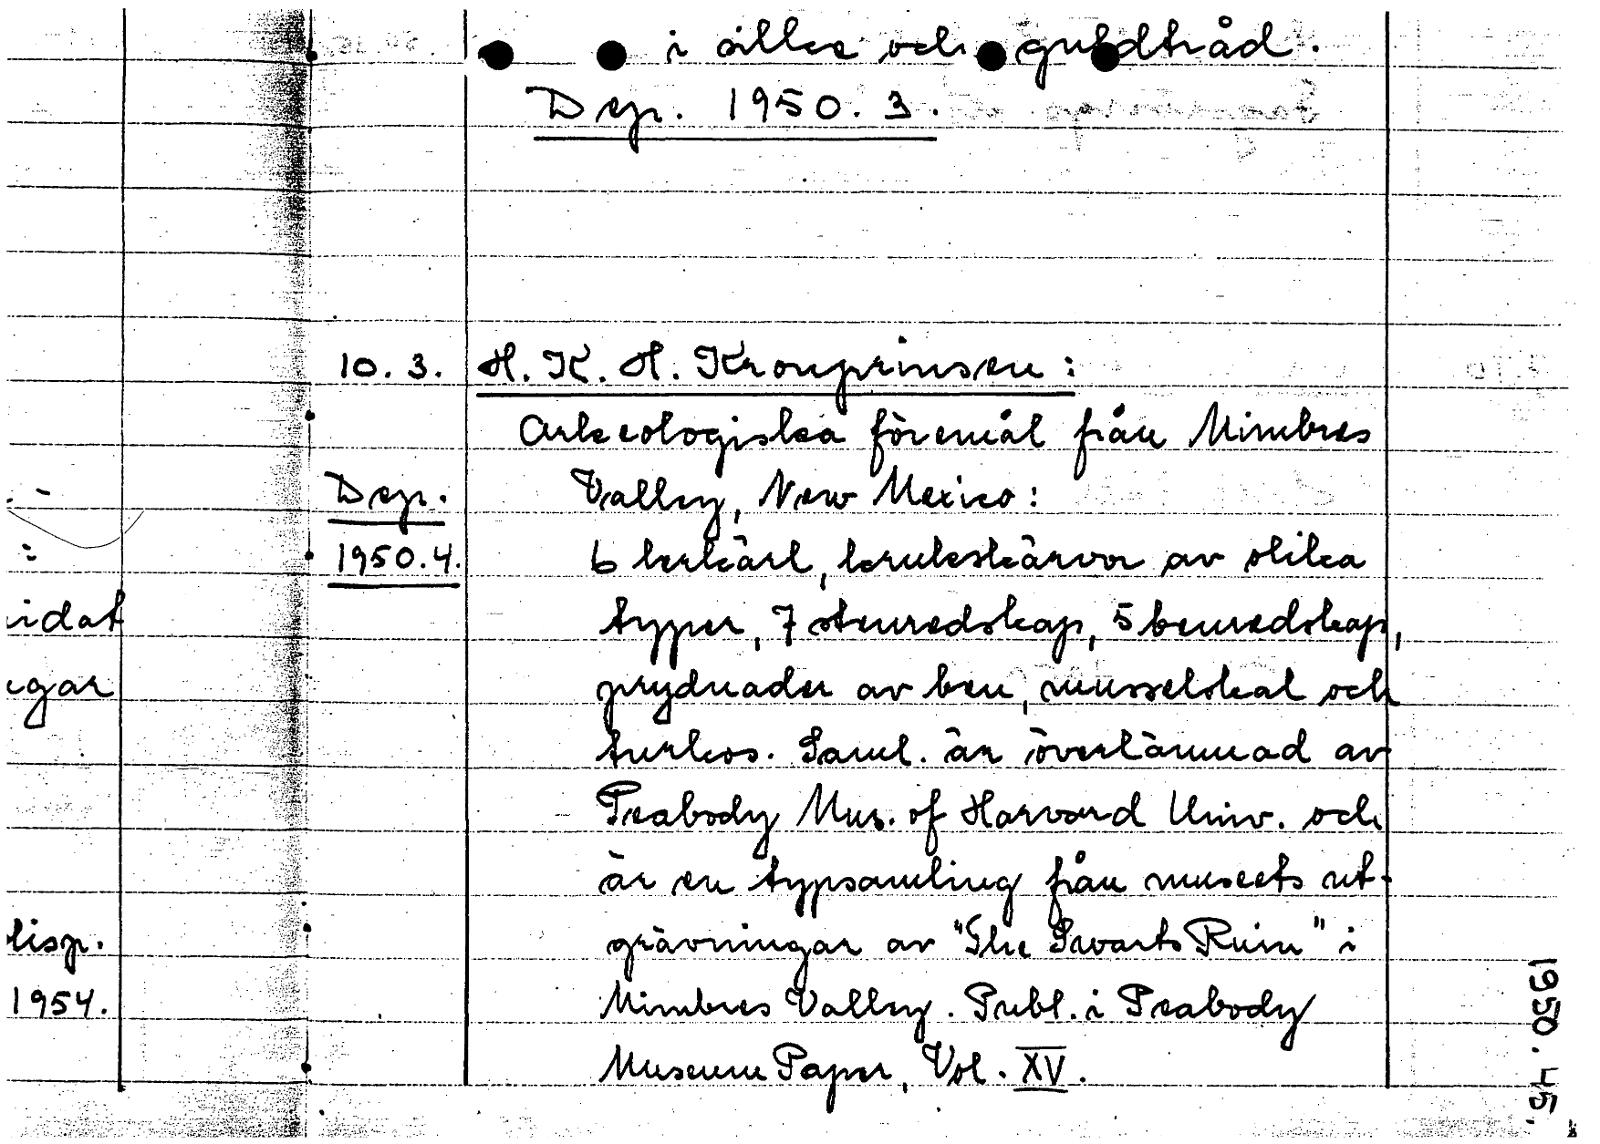 i silke och guldtråd.
Dep. 1950. 3.
10. 3. H. K. H. Kronprinsen:
Arkeologiska föremål från Mimbres
Dep. Valley, New Mexico:
1950.4. 6 lerkärl, krukskärvor av olika
typer, 7 stenredskap, 5 benredskap,
prydnader av ben, musselskal och
turkos. Saml. är överlämnad av
Peabody Mus. of Harvard Univ. och
är en typsamling från museets ut-
grävningar av "The Swarts Ruin" i
Mimbres Valley. Publ. i Peabody
Museum Paper, Vol. XV.
idat
gar
disp.
1954.
1950. 45.